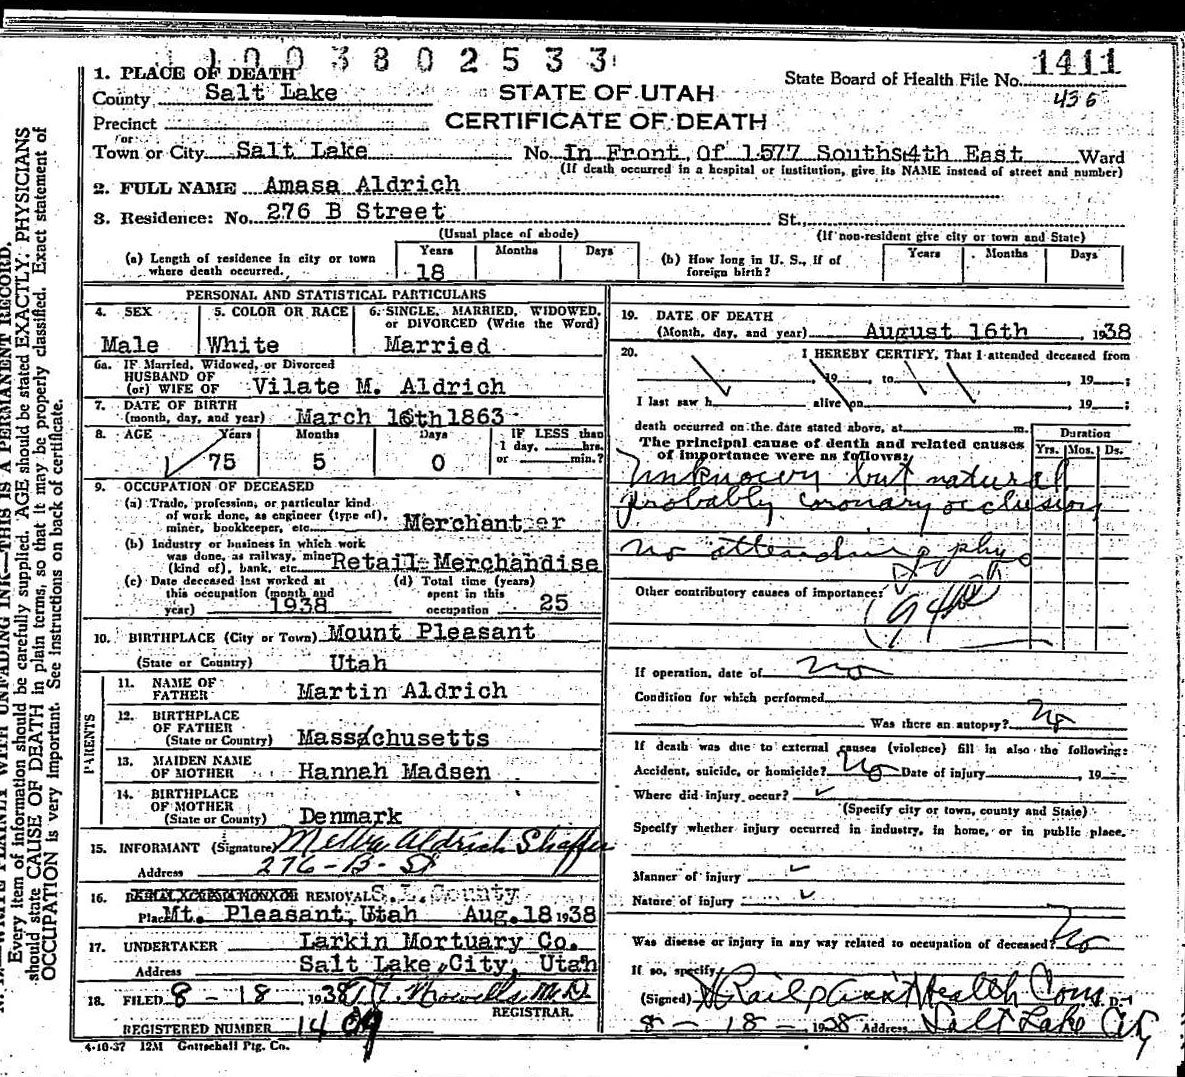 1 1 0 0 3 8 0 2 5 3 3
1. PLACE OF DEATH
County Salt Lake
STATE OF UTAH
CERTIFICATE OF DEATH
State Board of Health File No. 1411
436
Precinct
or
Town or City Salt Lake No. In Front Of 1577 South 4th East Ward
(If death occurred in a hospital or institution, give its NAME instead of street and number)
2. FULL NAME Amasa Aldrich
3. Residence: No. 276 B Street St.,
(Usual place of abode) (If non-resident give city or town and State)
(a) Length of residence in city or town where death occurred. Years 18 Months Days
(b) How long in U. S., if of foreign birth? Years Months Days
PERSONAL AND STATISTICAL PARTICULARS
4. SEX Male
5. COLOR OR RACE White
6. SINGLE, MARRIED, WIDOWED, or DIVORCED (Write the Word) Married
6a. IF Married, Widowed, or Divorced
HUSBAND OF
(or) WIFE OF Vilate M. Aldrich
7. DATE OF BIRTH
(month, day, and year) March 16th 1863
8. AGE Years 75 Months 5 Days 0
IF LESS than 1 day, hrs. or min.?
9. OCCUPATION OF DECEASED
(a) Trade, profession, or particular kind
of work done, as engineer (type of),
miner, bookkeeper, etc. Merchanter
(b) Industry or business in which work
was done, as railway, mine
(kind of), bank, etc. Retail Merchandise
(c) Date deceased last worked at
this occupation (month and
year) 1938
(d) Total time (years)
spent in this
occupation 25
10. BIRTHPLACE (City or Town) Mount Pleasant
(State or Country) Utah
PARENTS
11. NAME OF FATHER Martin Aldrich
12. BIRTHPLACE OF FATHER
(State or Country) Massachusetts
13. MAIDEN NAME OF MOTHER Hannah Madsen
14. BIRTHPLACE OF MOTHER
(State or Country) Denmark
15. INFORMANT (Signature) Melba Aldrich Shaffer
Address 276-B-St
16. REMOVAL S. L. County
Place Mt. Pleasant, Utah Aug. 18 1938
17. UNDERTAKER Larkin Mortuary Co.
Address Salt Lake City, Utah
18. FILED 8-18, 1938 Howells M.D.
REGISTRAR.
REGISTERED NUMBER 1409
19. DATE OF DEATH
(Month, day, and year) August 16th, 1938
20. I HEREBY CERTIFY, That I attended deceased from
, 19 , to , 19 ;
I last saw h alive on , 19 ;
death occurred on the date stated above, at m.
The principal cause of death and related causes
of importance were as follows:
Duration
Yrs. Mos. Ds.
Unknown but natural
probably coronary occlusion
no attending phys
Other contributory causes of importance:
If operation, date of no
Condition for which performed
Was there an autopsy? No
If death was due to external causes (violence) fill in also the following:
Accident, suicide, or homicide? No Date of injury , 19
Where did injury occur?
(Specify city or town, county and State)
Specify whether injury occurred in industry, in home, or in public place.
Manner of injury
Nature of injury
Was disease or injury in any way related to occupation of deceased? No
If so, specify
(Signed) Health Com
8-18-1938 Address Salt Lake City
4-10-37 12M Gottschall Ptg. Co.
WRITE PLAINLY WITH UNFADING INK—THIS IS A PERMANENT RECORD.
Every item of information should be carefully supplied. AGE should be stated EXACTLY. PHYSICIANS
should state CAUSE OF DEATH in plain terms, so that it may be properly classified. Exact statement of
OCCUPATION is very important. See instructions on back of certificate.